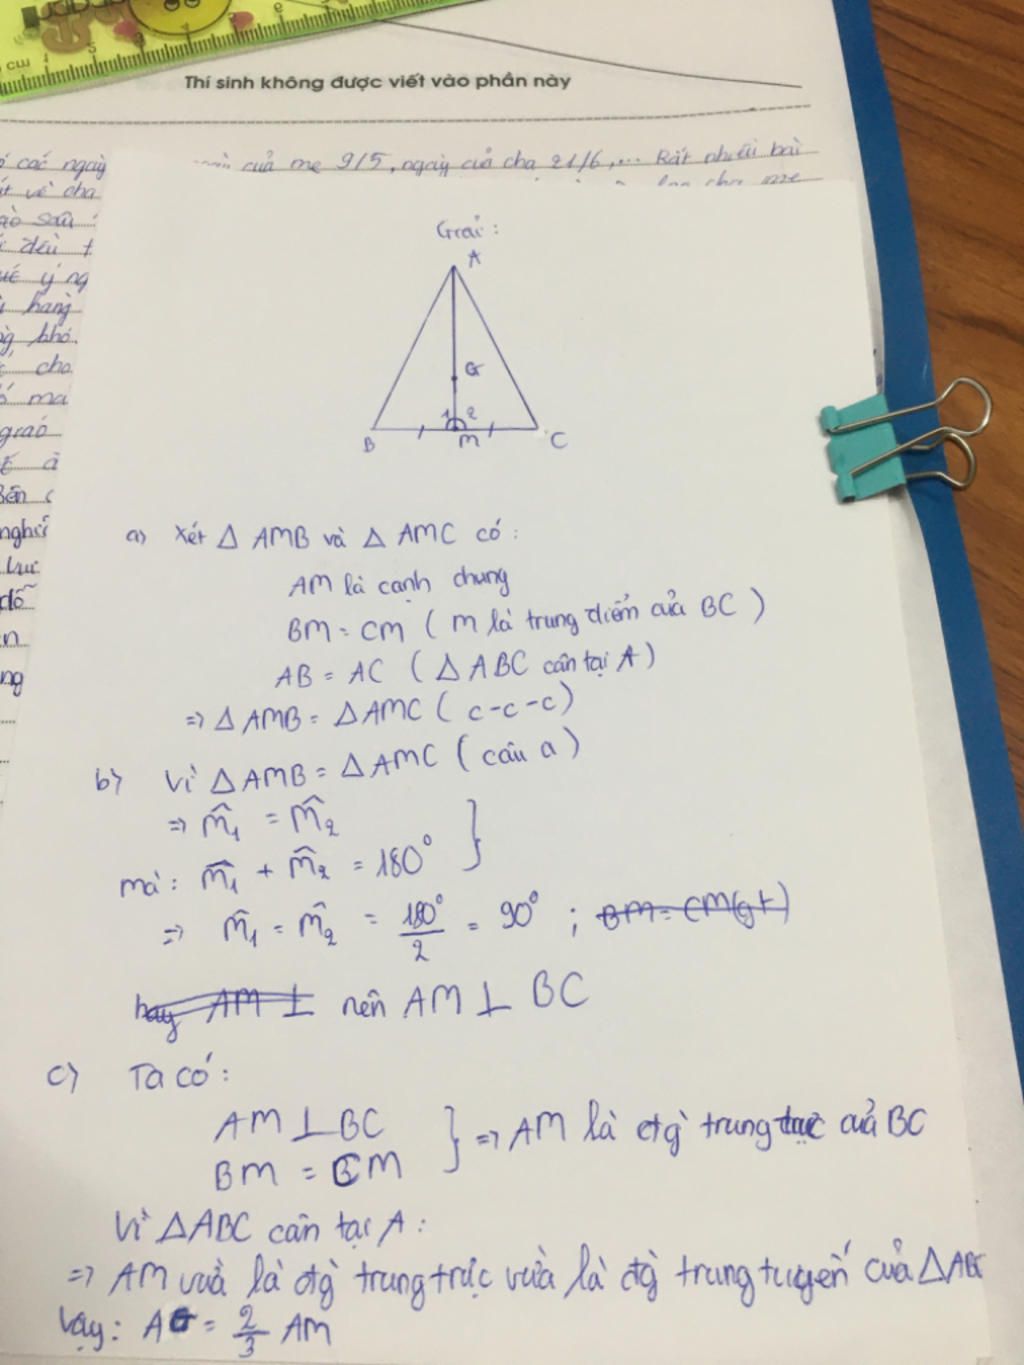 cm
Thí sinh không được viết vào phần này
của mẹ 9/5, ngày của cha 21/6,... Rất nhiều bài
các ngày
vẽ cha
sau
đều t
ý ng
hang
khó.
cho
ma
giáo
à
Bến c
nghĩ
trúc
dỗ
n
ng
Giải:
A
G
1 2
B M C
a) Xét △ AMB và △ AMC có:
AM là cạnh chung
BM = CM ( M là trung điểm của BC )
AB = AC ( △ ABC cân tại A )
=> △ AMB = △ AMC ( c-c-c )
b) Vì △ AMB = △ AMC ( câu a )
=> M̂₁ = M̂₂ }
mà: M̂₁ + M̂₂ = 180°
=> M̂₁ = M̂₂ = 180°/2 = 90° ; BM = CM (gt)
hay AM ⊥ nên AM ⊥ BC
c) Ta có:
AM ⊥ BC } => AM là đtg̀ trung trực của BC
BM = CM
Vì △ABC cân tại A:
=> AM vừa là đtg̀ trung trực vừa là đtg̀ trung tuyến của △ABC
Vậy: AG = 2/3 AM